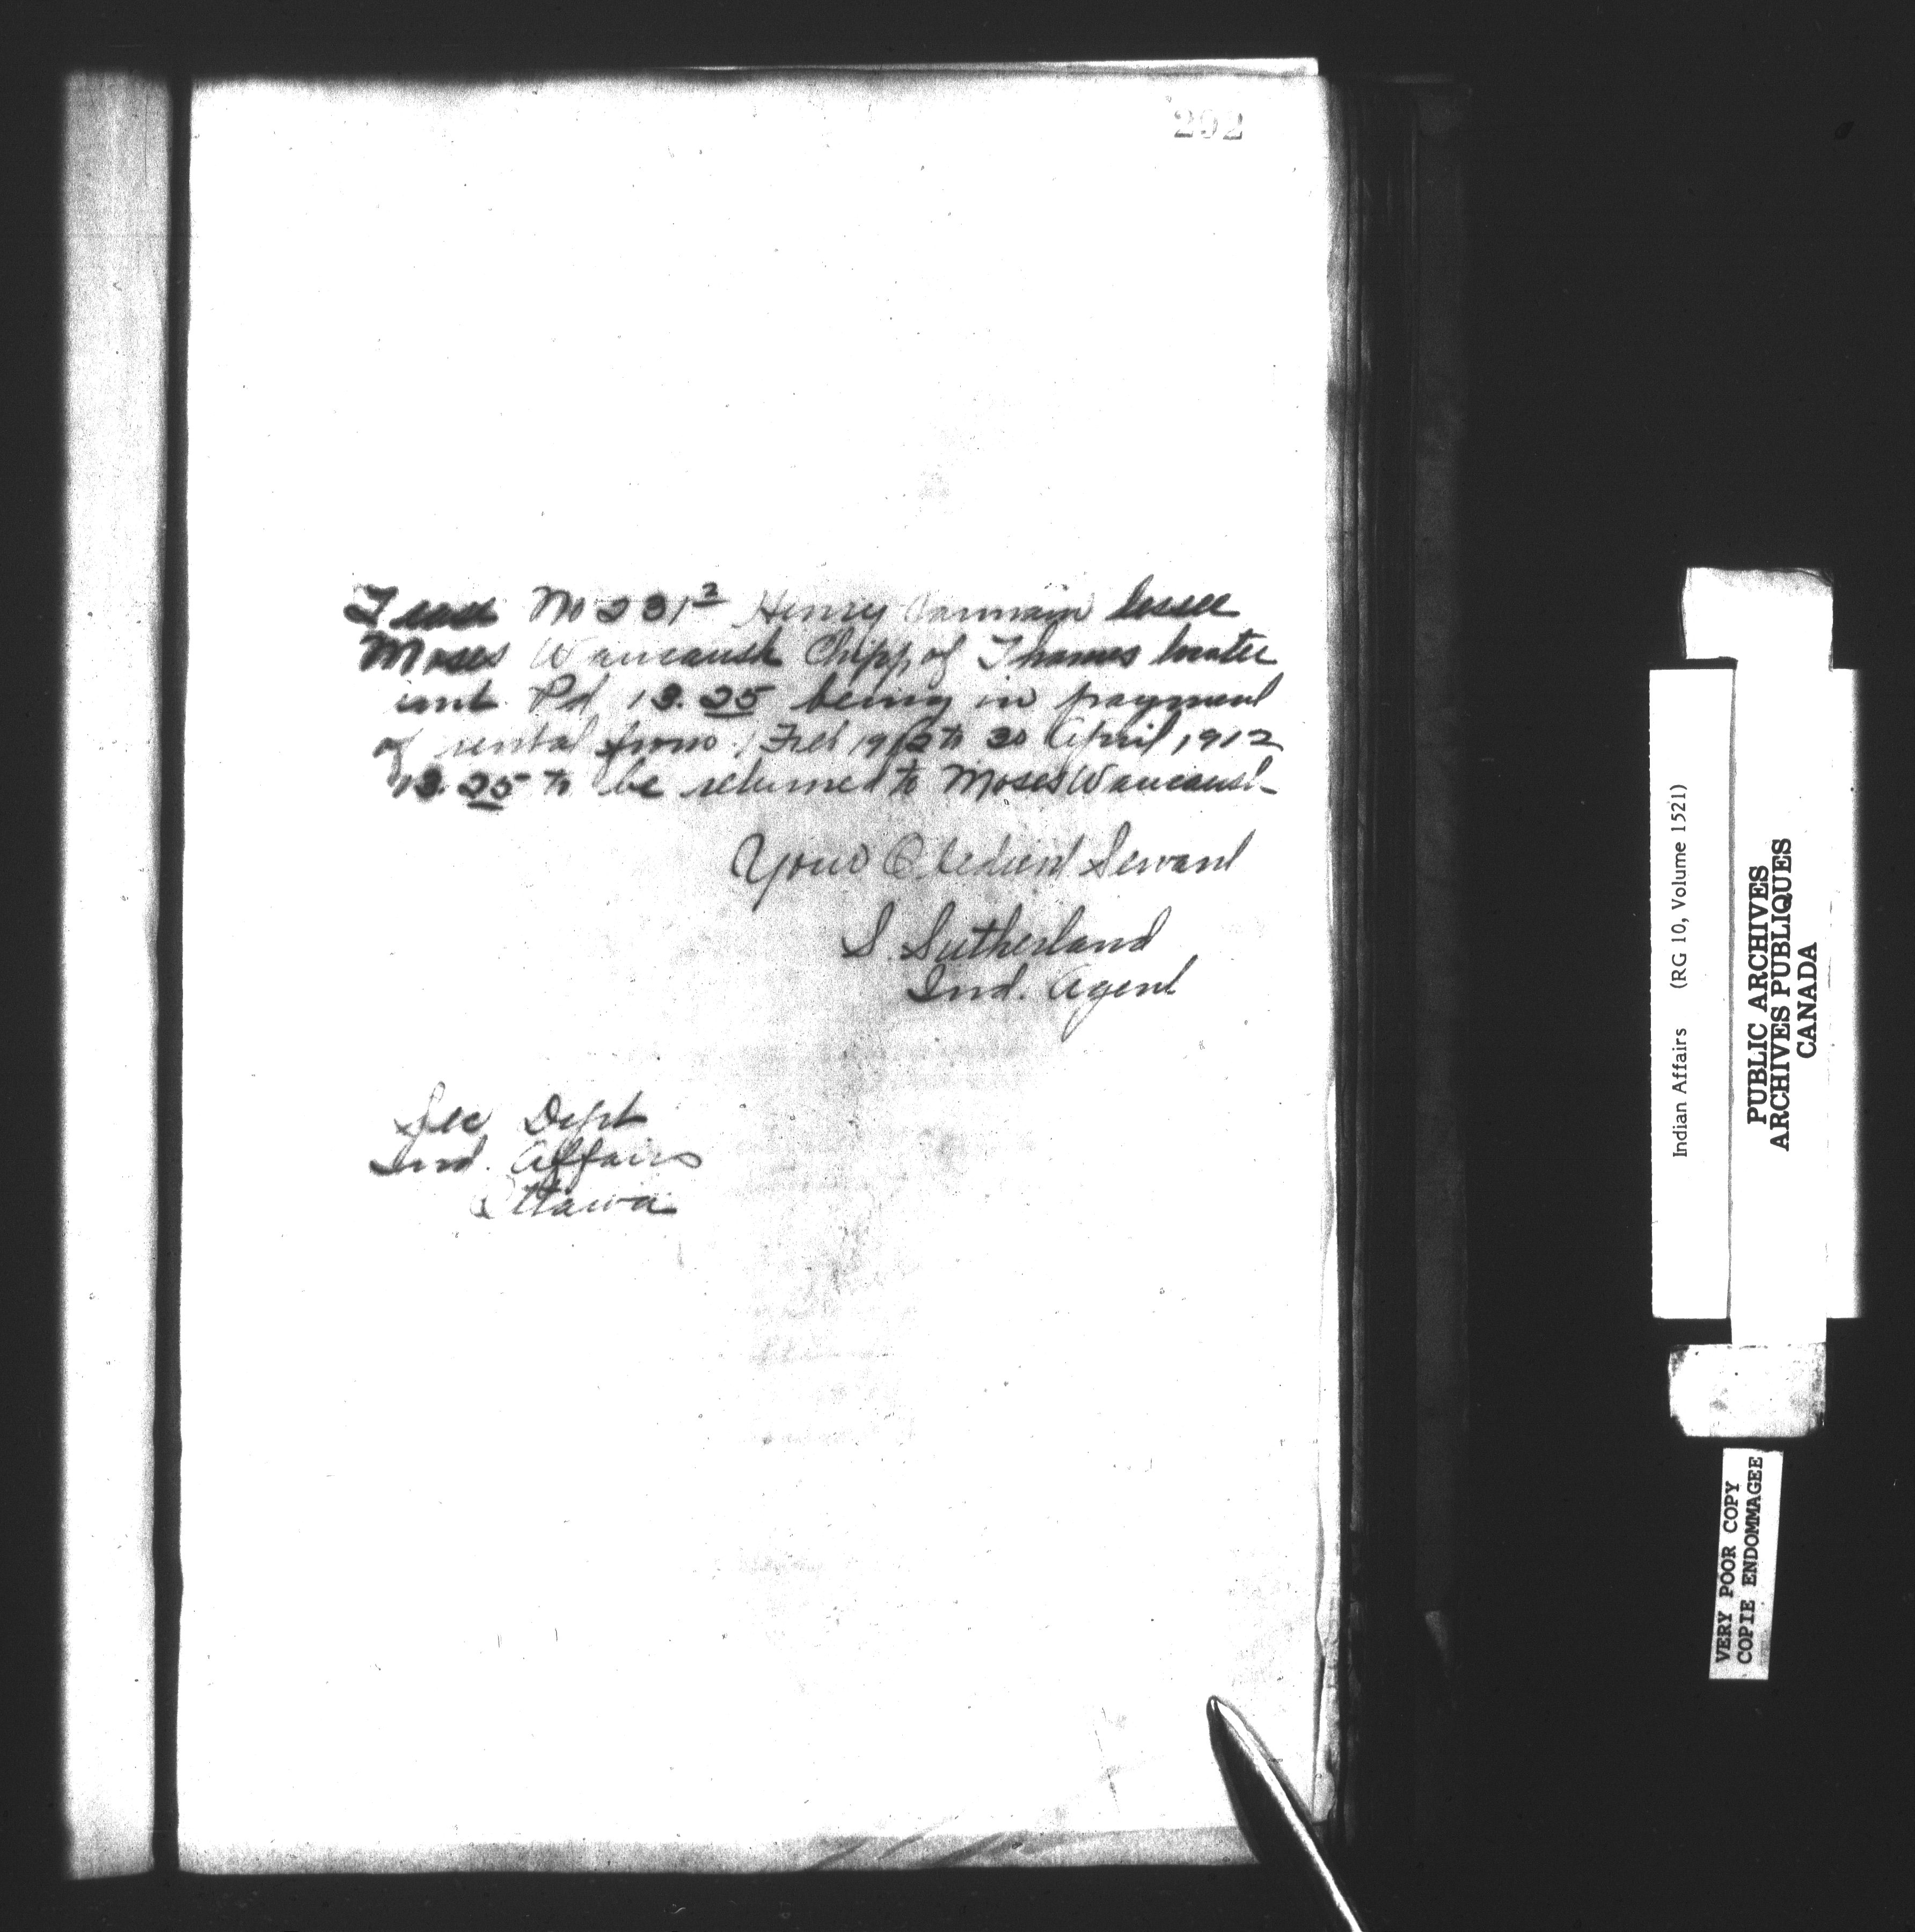 202
Lease No 231² Henry lessee
Moses Waucaush Chipp, of Thames locatee
Pd 13.25 being in payment
of rental from 1 Feb 1912 to 30 April 1912
13.25 to be returned to Moses Waucaush
Your Obedient Servant
S. Sutherland
Ind. Agent
Sec Dept
Ind. Affairs
Ottawa
Indian Affairs (RG 10, Volume 1521)
PUBLIC ARCHIVES
ARCHIVES PUBLIQUES
CANADA
VERY POOR COPY
COPIE ENDOMMAGEE